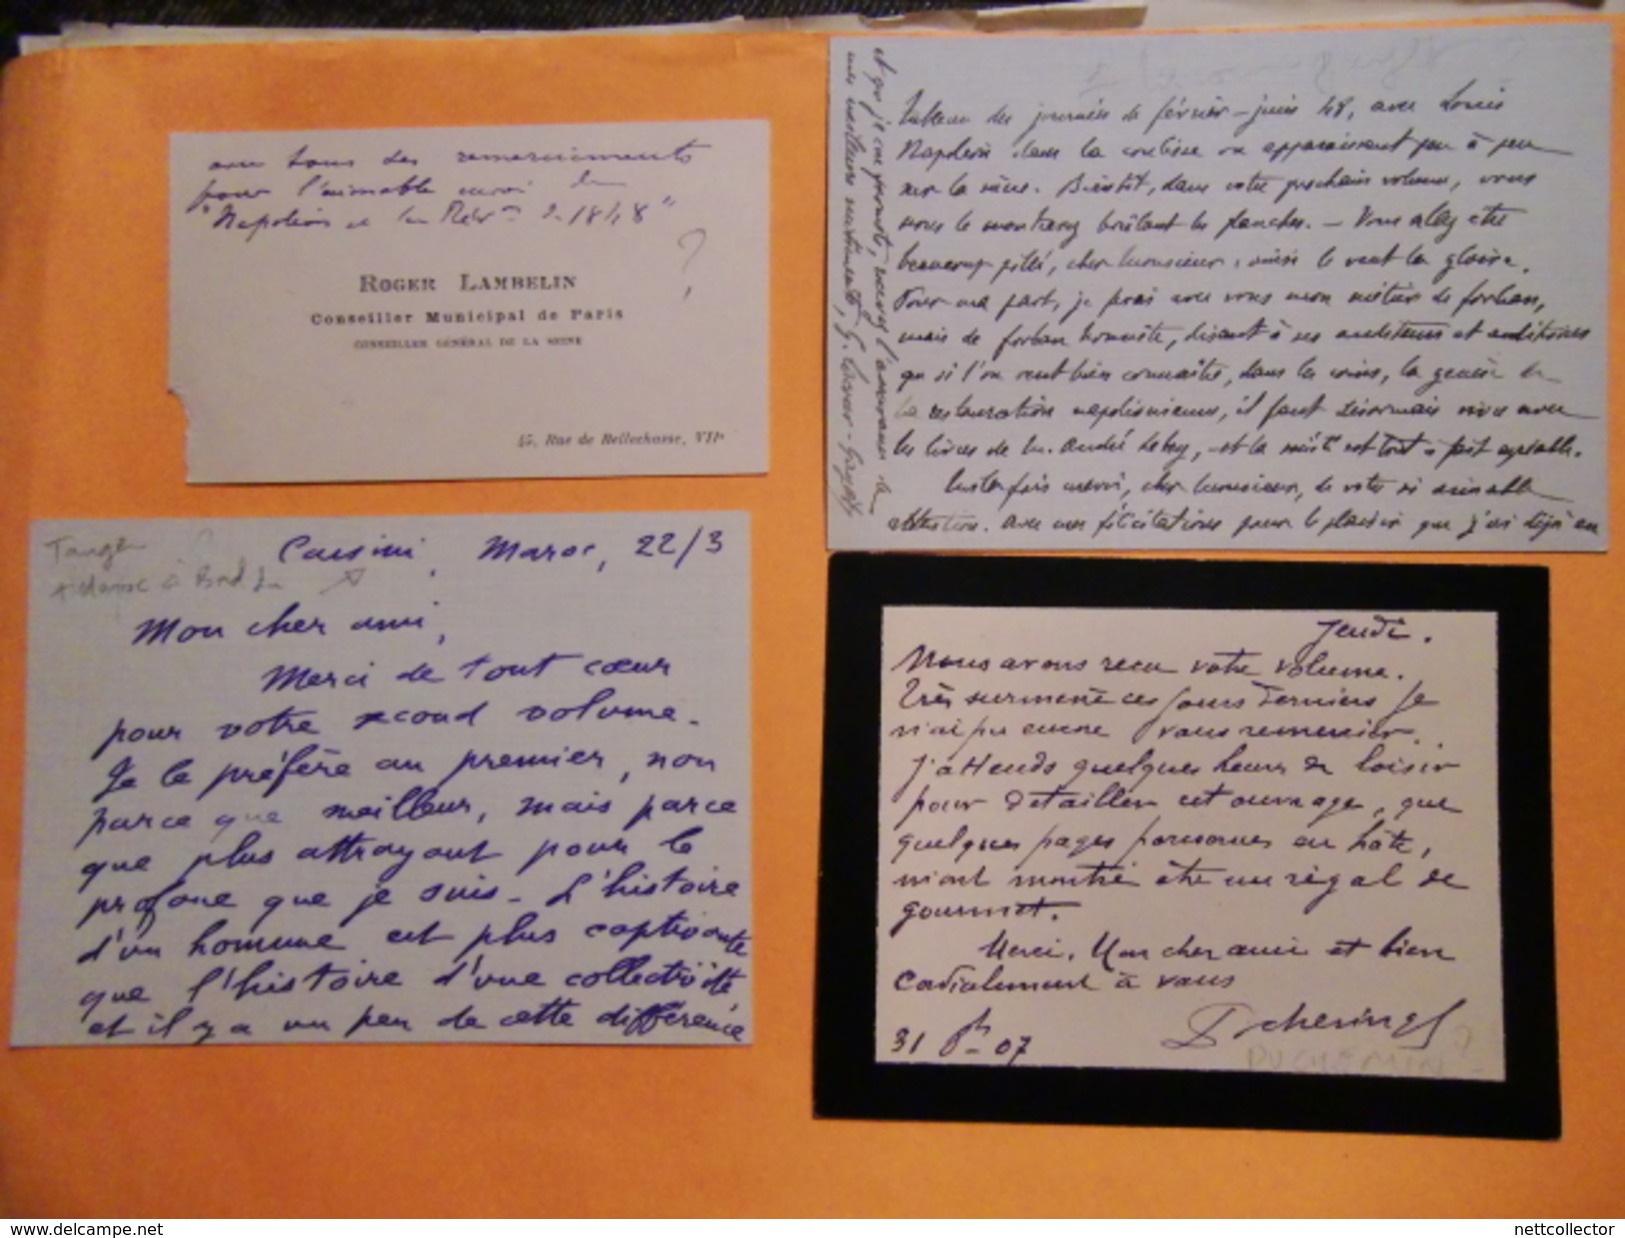 avec tous ses remerciements
pour l'aimable envoi de
"Napoléon et la Rév.on de 1848"
?
ROGER LAMBELIN
Conseiller Municipal de Paris
CONSEILLER GÉNÉRAL DE LA SEINE
45, Rue de Bellechasse, VIIe
tableau des journées de février-juin 48, avec Louis
Napoléon dans la coulisse ou apparaissant peu à peu
sur la scène. Bientôt, dans votre prochain volume, vous
nous le montrerez brûlant les planches. — Vous allez être
beaucoup pillé, cher Monsieur : ainsi le veut la gloire.
Pour ma part, je ferai avec vous mon métier de forban,
mais de forban honnête, disant à ses auditeurs et auditrices
que si l'on veut bien connaître, dans les coins, la genèse de
la restauration napoléonienne, il faut désormais vivre avec
les livres de M. André Lebey, et la société est tout à fait agréable.
Une fois merci, cher Monsieur, de votre si aimable
attention. Avec mes félicitations pour le plaisir que j'ai déjà eu
et que je me promets, recevez l'assurance de
mes meilleurs sentiments,
Tanger
Maroc à
Cassini, Maroc, 22/3
Mon cher ami,
Merci de tout cœur
pour votre second volume.
Je le préfère au premier, non
parce que meilleur, mais parce
que plus attrayant pour le
profane que je suis. L'histoire
d'un homme est plus captivante
que l'histoire d'une collectivité
et il y a un peu de cette différence
Jeudi.
Nous avons reçu votre volume.
Très surmené ces jours derniers je
n'ai pu encore vous remercier.
J'attends quelques heures de loisir
pour détailler cet ouvrage, que
quelques pages parcourues en hâte,
m'ont montré être un régal de
gourmet.
Merci, Mon cher ami et bien
Cordialement à vous
31 8bre 07
DUCHEMIN ?
www.delcampe.net
nettcollector